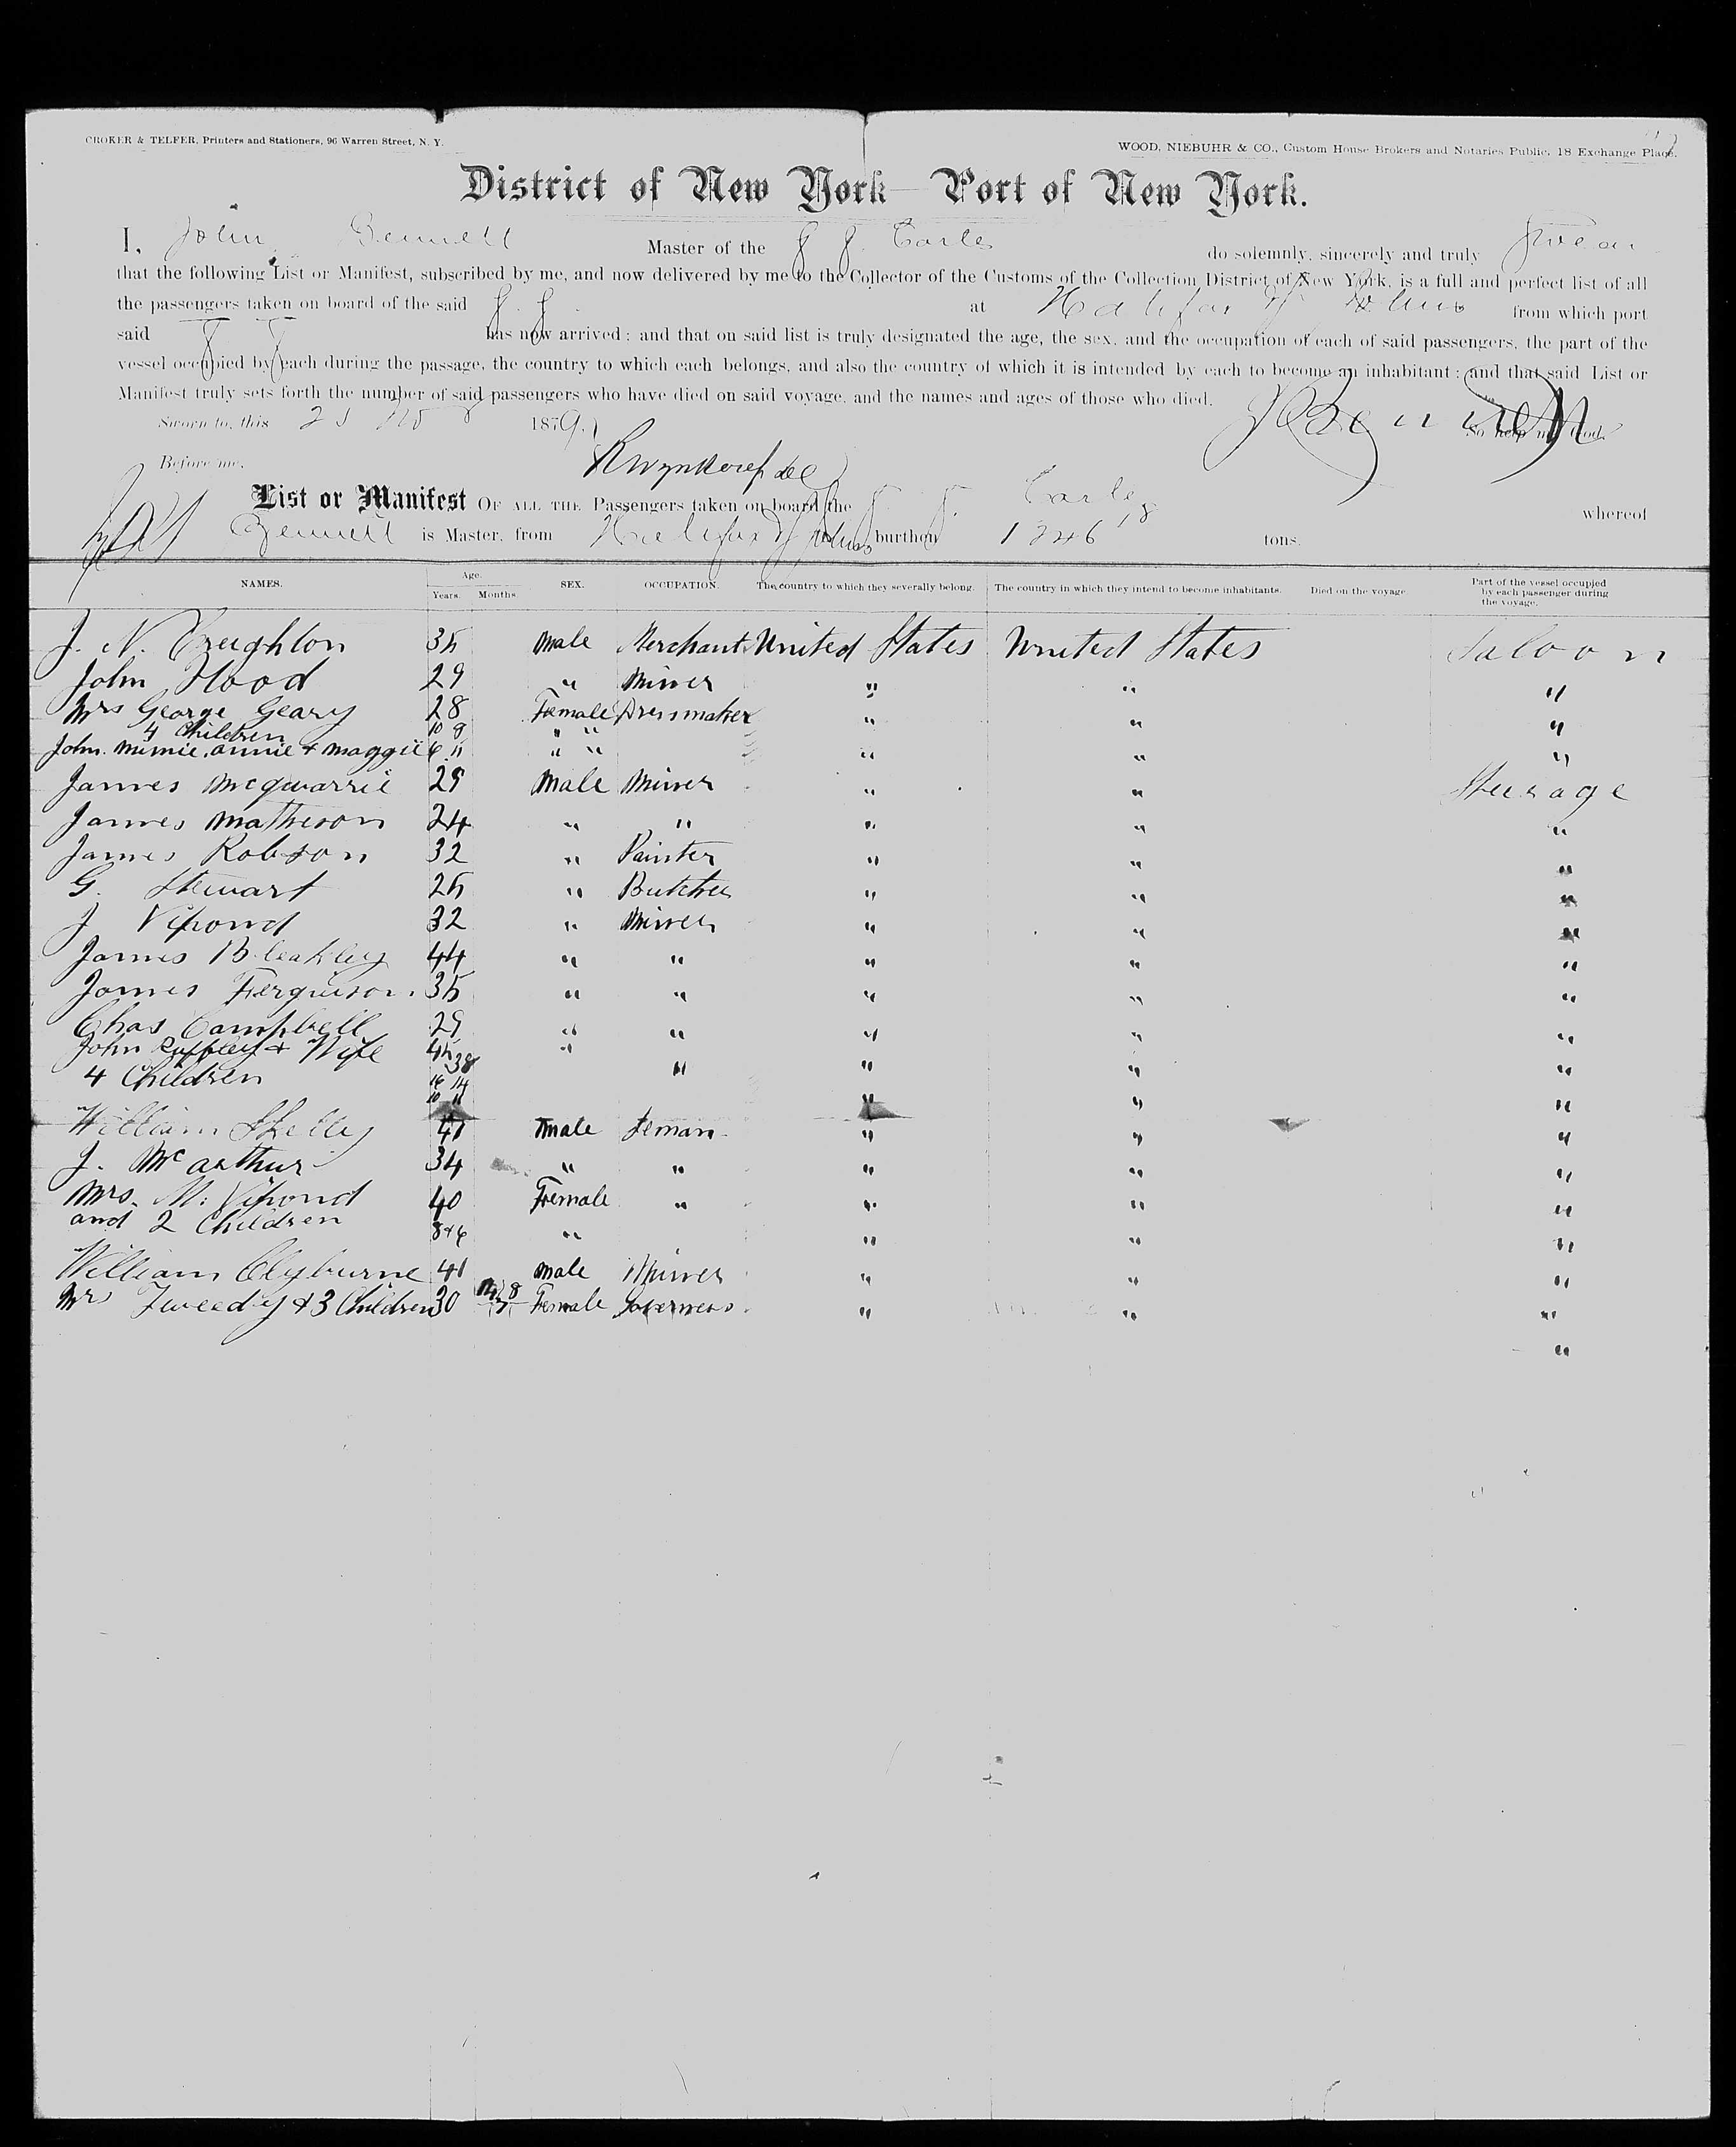 CROKER & TELFER, Printers and Stationers, 96 Warren Street, N. Y.
WOOD, NIEBUHR & CO., Custom House Brokers and Notaries Public, 18 Exchange Place.
District of New York—Port of New York.
I, John Bennett Master of the do solemnly, sincerely and truly swear
that the following List or Manifest, subscribed by me, and now delivered by me to the Collector of the Customs of the Collection District of New York, is a full and perfect list of all
the passengers taken on board of the said at Halifax from which port
said has now arrived: and that on said list is truly designated the age, the sex, and the occupation of each of said passengers, the part of the
vessel occupied by each during the passage, the country to which each belongs, and also the country of which it is intended by each to become an inhabitant: and that said List or
Manifest truly sets forth the number of said passengers who have died on said voyage, and the names and ages of those who died.
Sworn to, this 1879. So help me God.
Before me,
List or Manifest OF ALL THE Passengers taken on board the whereof
Bennett is Master, from Halifax burthen 1346 18 tons.
NAMES. Age. Years. Months. SEX. OCCUPATION. The country to which they severally belong. The country in which they intend to become inhabitants. Died on the voyage Part of the vessel occupied by each passenger during the voyage.
J. N. Creighton 35 male Merchant United States United States Saloon
John Flood 29 " Miner " " "
Mrs George Geary 28 Female Dressmaker " " "
4 Children 10 8 " "
John. Minnie. annie & maggie 6 11 " " " " "
James McQuarrie 29 Male Miner " " Steerage
James Matheson 24 " " " " "
James Robson 32 " Painter " " "
G. Stewart 25 " Butcher " " "
J Vipond 32 " Miner " " "
James Bleakley 44 " " " " "
James Ferguison 35 " " " " "
Chas Campbell 29 " " " " "
John & Wife 45 38 " " " " "
4 Children 16 14 10 11 " " "
William Shelley 41 male Seman " " "
J. McArthur 34 " " " " "
Mrs. M. Vipond 40 Female " " " "
and 2 Children 8+6 " " " "
William Clyburne 41 male Miner " " "
Mrs Tweedy & 3 Children 30 Female Governess " " "
"